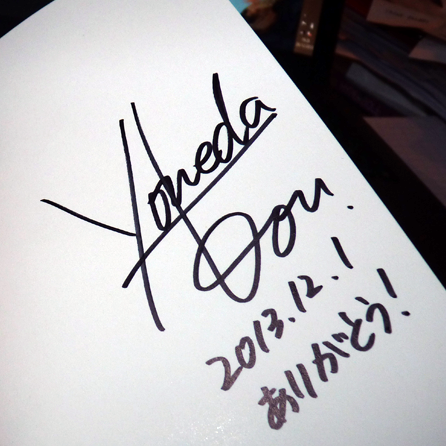 Yoneda
Kou.
2013.12.1
ありがとう!